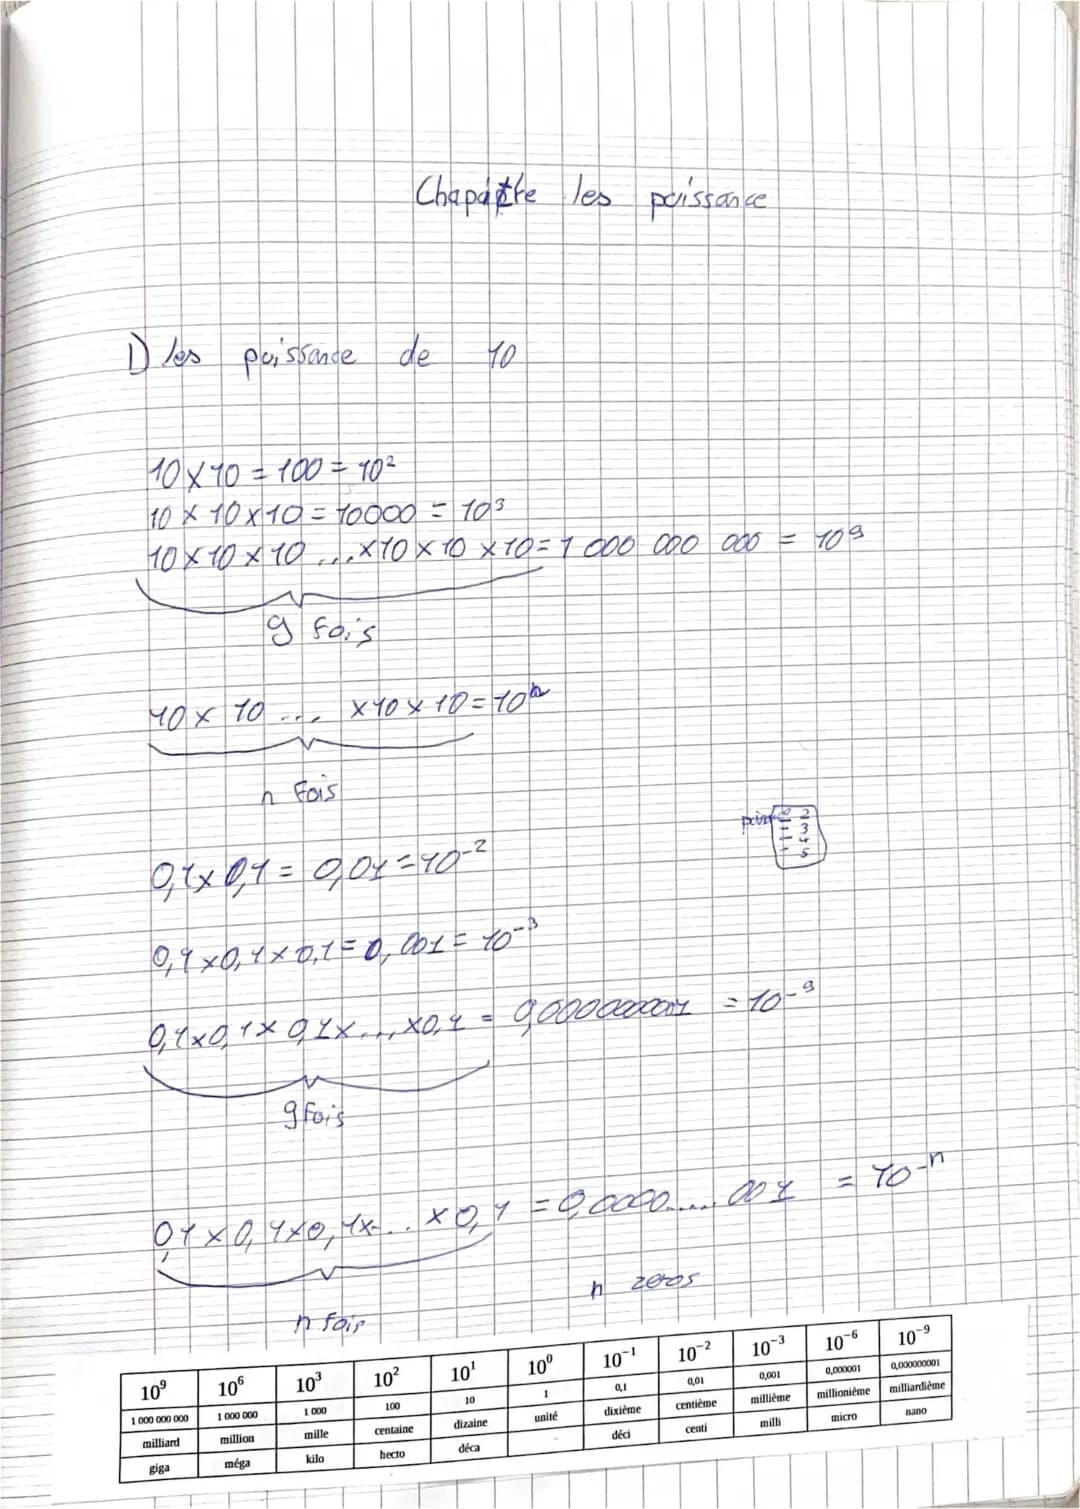 Chapitre les puissance
I) les puissance de 10
10 × 10 = 100 = 10²
10 × 10 × 10 = 10000 = 10³
10 × 10 × 10 ... × 10 × 10 × 10 = 1 000 000 000 = 10⁹
9 fois
10 × 10 ... × 10 × 10 = 10ⁿ
n fois
2
3
4
5
0,1 × 0,1 = 0,01 = 10⁻²
0,1 × 0,1 × 0,1 = 0,001 = 10⁻³
0,1 × 0,1 × 0,1 × ... × 0,1 = = 10⁻⁹
9 fois
0,1 × 0,1 × 0,1 × ... × 0,1 = 0,0000.....001 = 10⁻ⁿ
n fois n zeros
10⁹ 10⁶ 10³ 10² 10¹ 10⁰ 10⁻¹ 10⁻² 10⁻³ 10⁻⁶ 10⁻⁹
1 000 000 000 1 000 000 1 000 100 10 1 0,1 0,01 0,001 0,000001 0,000000001
milliard million mille centaine dizaine unité dixième centième millième millionième milliardième
giga méga kilo hecto déca déci centi milli micro nano